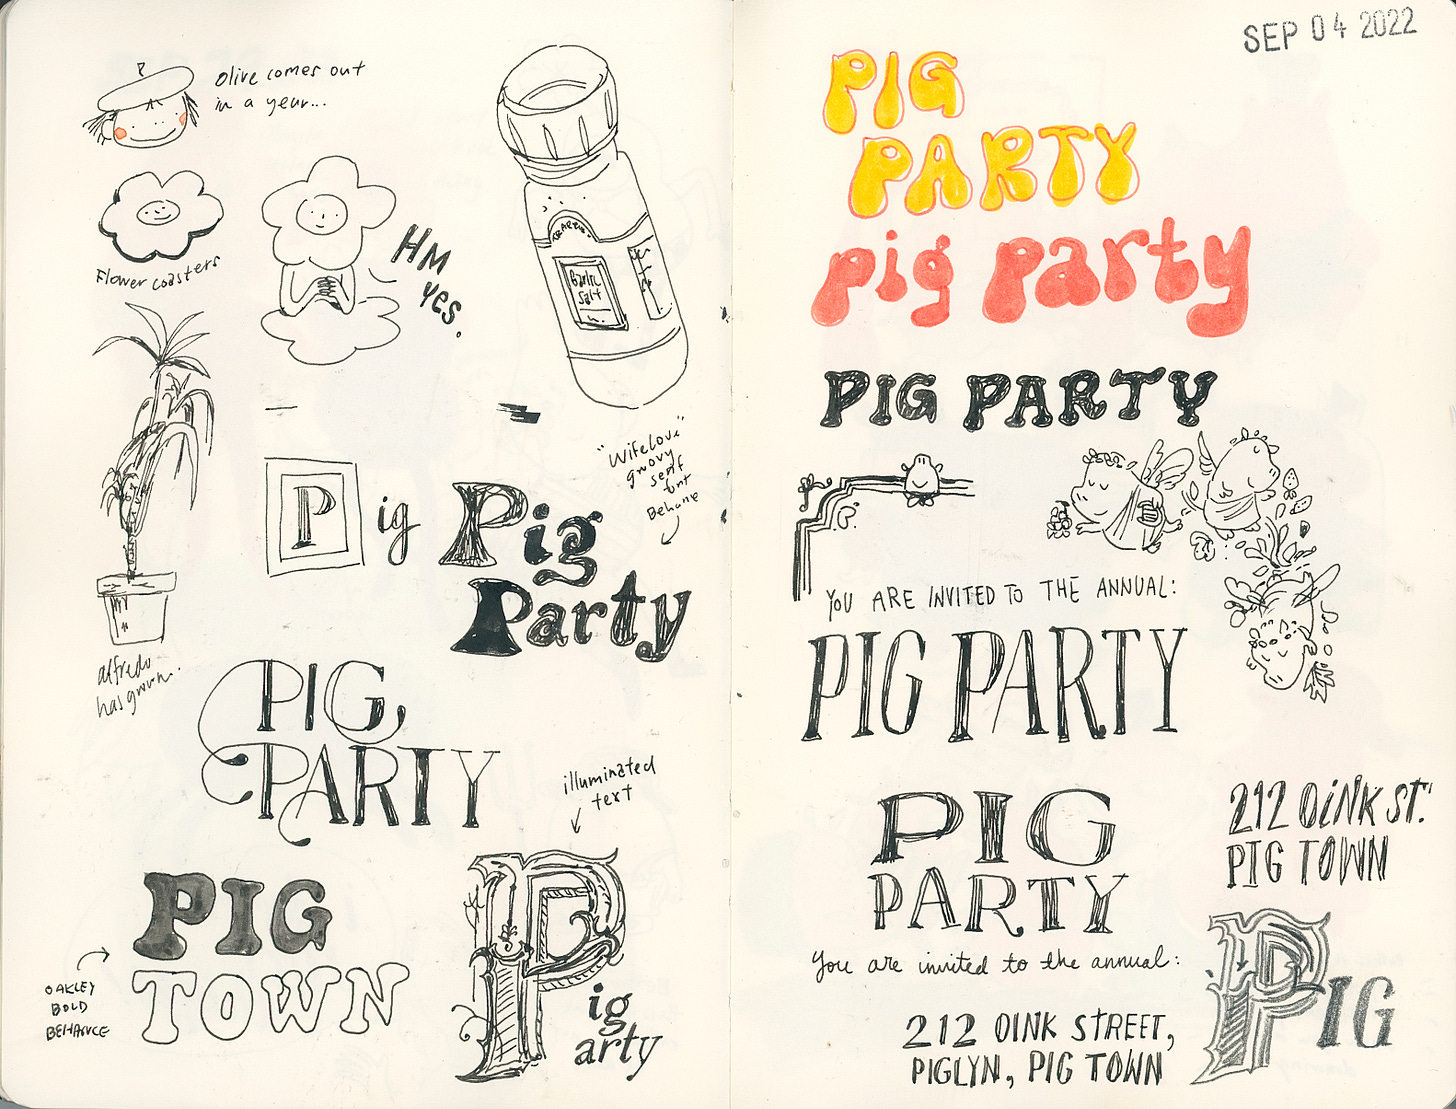 Olive comes out
in a year...
Flower coasters
HM
YES.
Garlic
Salt
alfredo
has grown.
P ig
"Wifelove"
groovy
serif
font
Behance
Pig
Party
PIG,
PARTY
illuminated
text
PIG
TOWN
OAKLEY
BOLD
BEHANCE
P
ig
arty
SEP 04 2022
PIG
PARTY
pig party
PIG PARTY
YOU ARE INVITED TO THE ANNUAL:
PIG PARTY
PIG
PARTY
You are invited to the annual:
212 OINK STREET,
PIGLYN, PIG TOWN
212 OiNK ST.
PIG TOWN
PIG